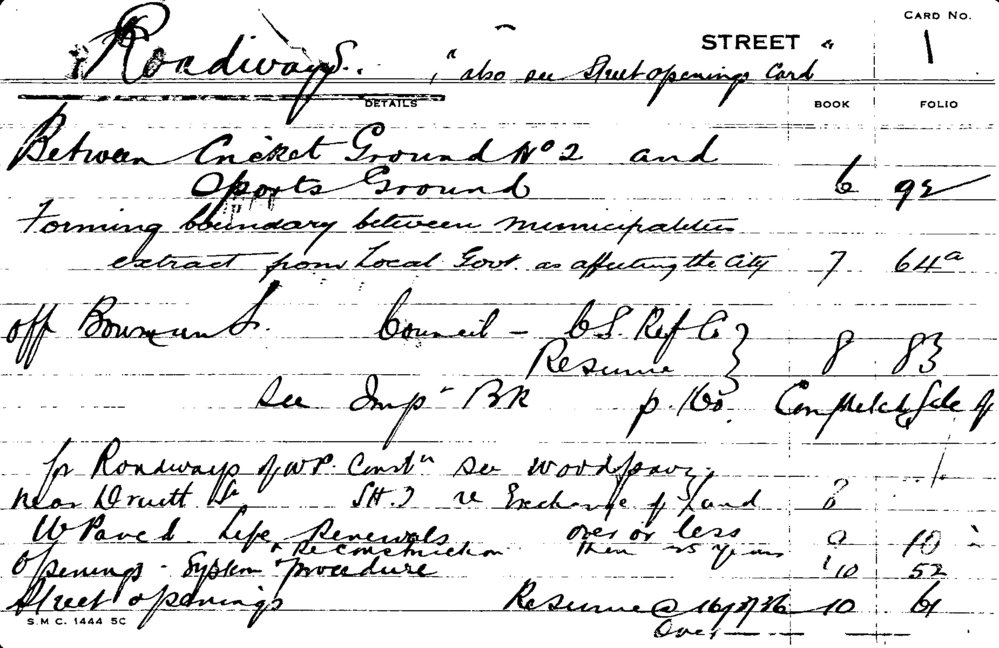 CARD No.
Roadways. STREET " 1
" also see Street openings Card
DETAILS BOOK FOLIO
Between Cricket Ground No 2 and
Sports Ground 6 92
Forming boundary between Municipalities
extract from Local Govt. as affecting the City 7 64a
off Bowman St. Council - C S. Ref C }
Resume } 8 83
see Imp BK p. 160. Complete
for Roadways of W.P. Constn see Woodpav
near Druitt St re Exchange of Land 8
W Paved. Life Renewals over or less 9 10
& Reconstruction than 25 years
Openings - System & procedure 10 52
Street openings Resume @ 10 61
S.M.C. 1444 5C Over